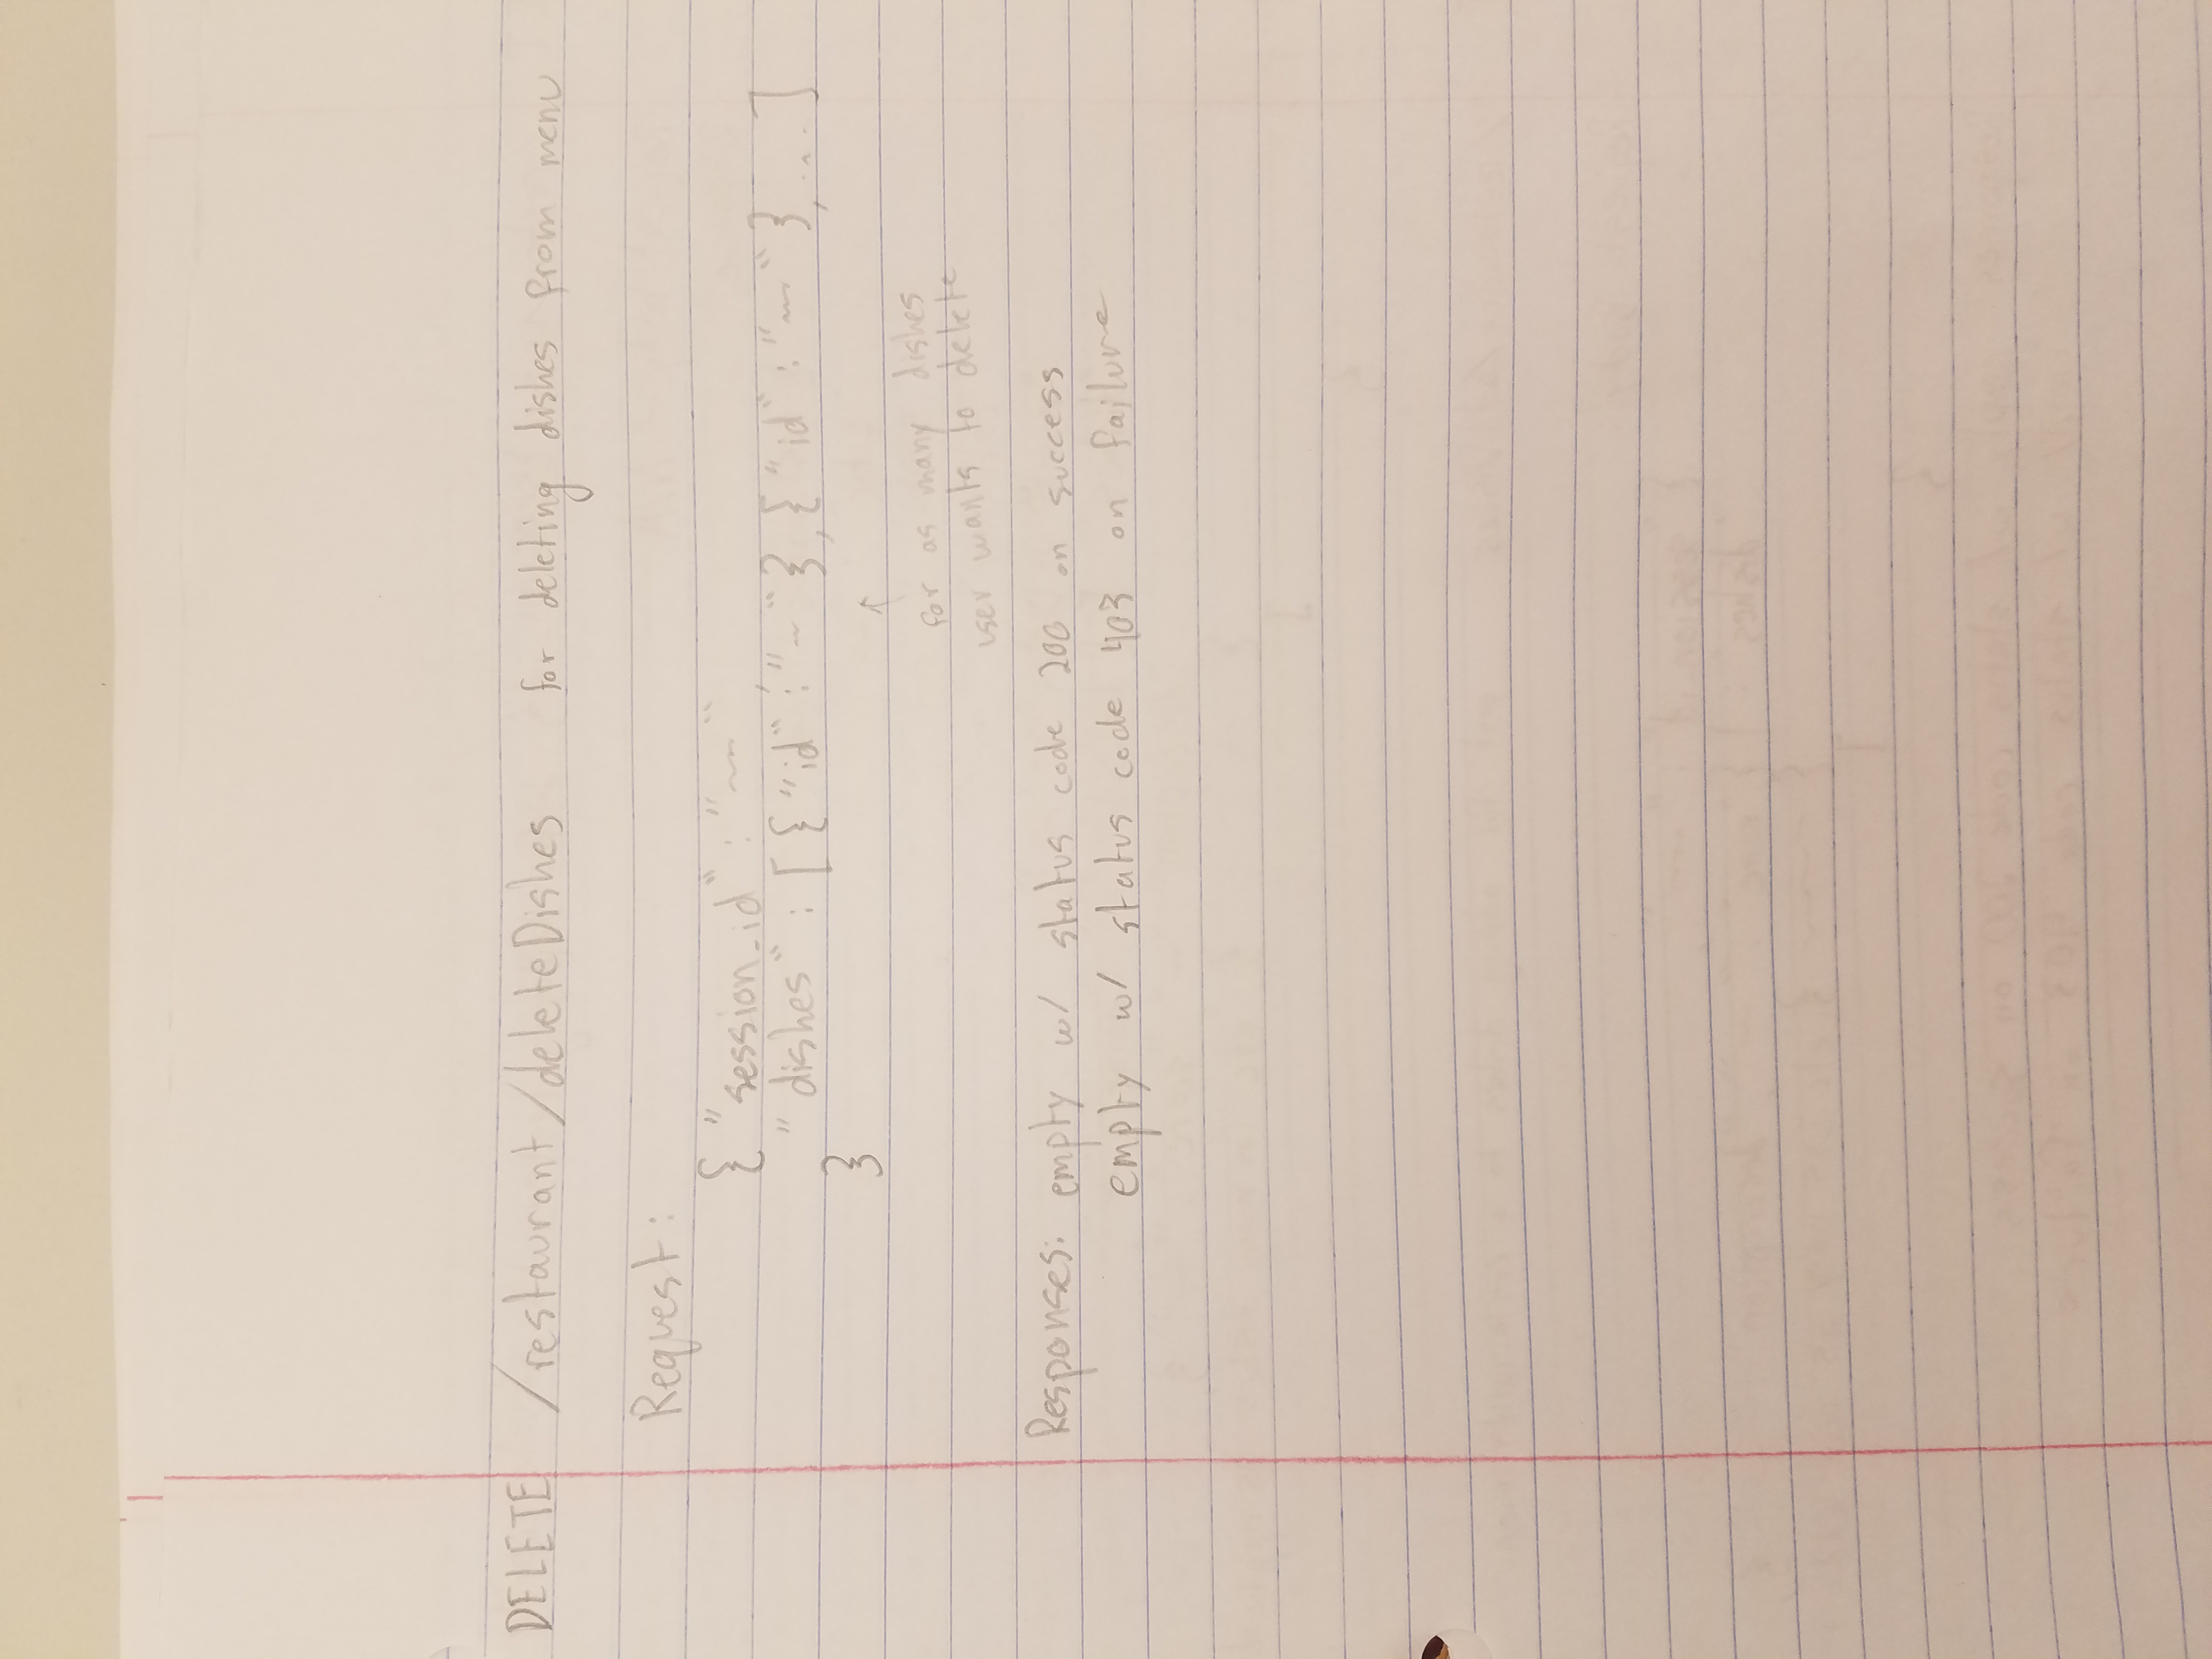 DELETE /restaurant/deleteDishes for deleting dishes from menu
Request:
{ "session_id" : "~~",
"dishes" : [ { "id" : "~" }, { "id" : "~~" }, ... ]
}
↑
for as many dishes
user wants to delete
Responses: empty w/ status code 200 on success
empty w/ status code 403 on failure